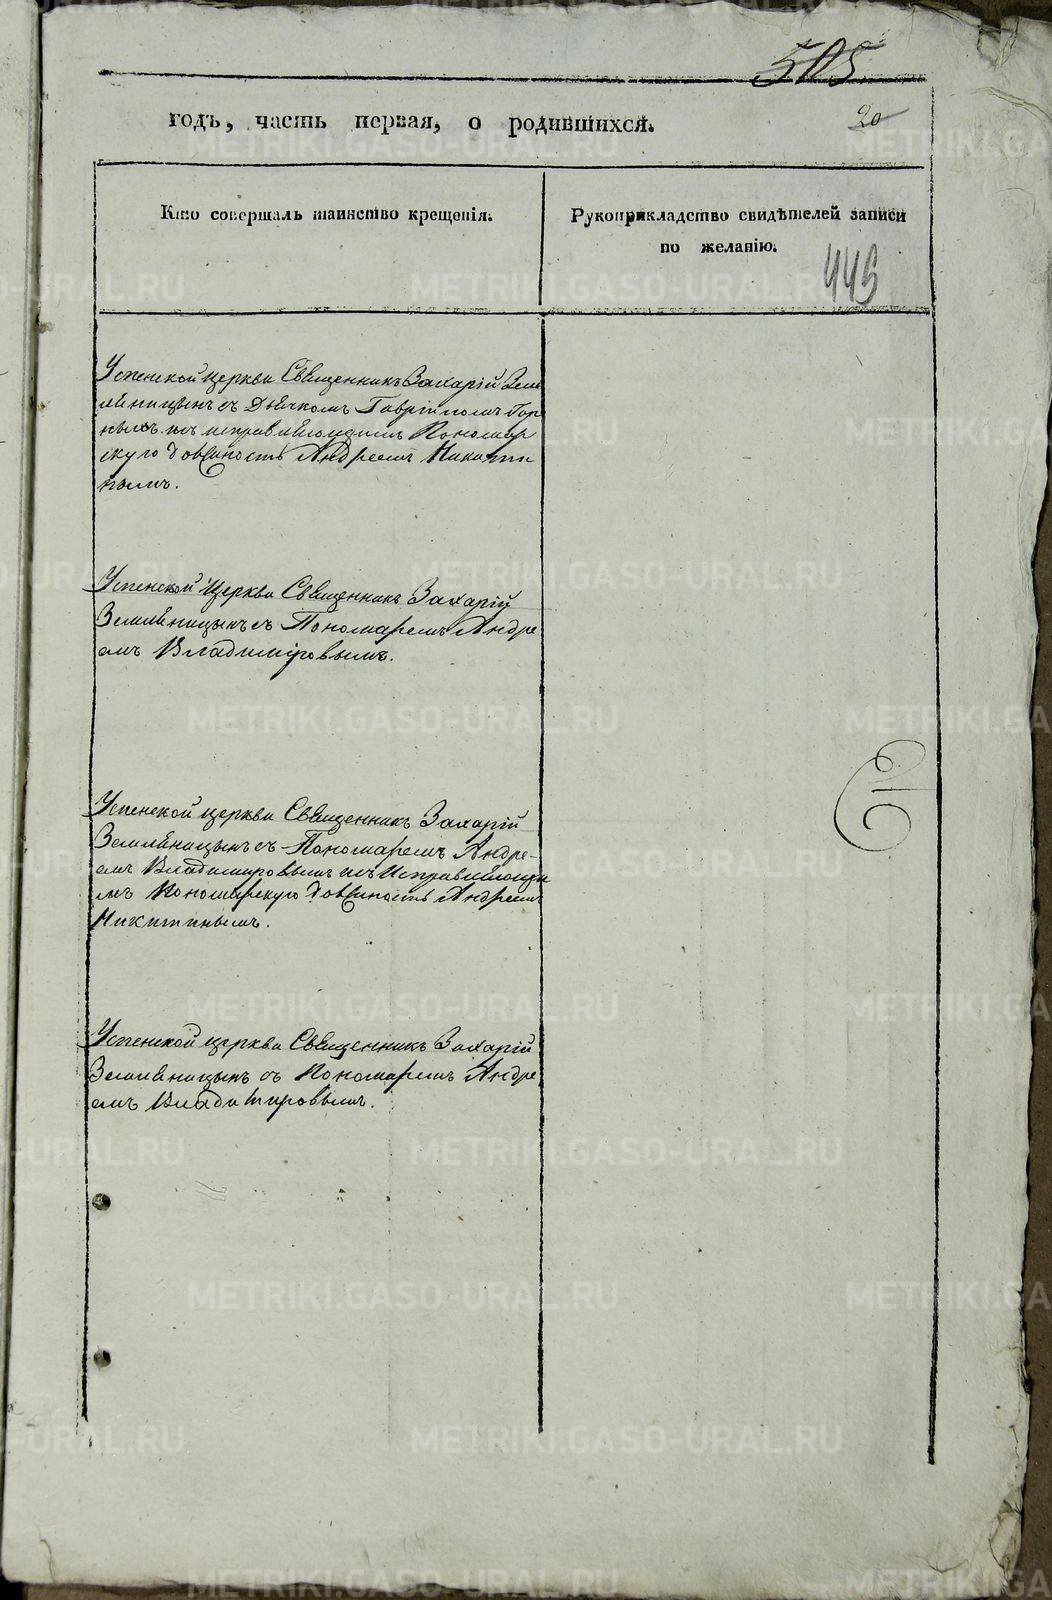 505
годъ, часть первая, о родившихся.
20
Кто совершалъ таинство крещенія.
Рукоприкладство свидѣтелей записи
по желанію.
445
Успенской церкви Священникъ Захарій Земл
яницынъ съ Дьячкомъ
и исправляющимъ Пономар
скую должность Андреемъ Никити
нымъ.
Успенской Церкви Священникъ Захарій
Земляницынъ съ Пономаремъ Андре
емъ Владиміровымъ.
Успенской церкви Священникъ Захарій
Земляницынъ съ Пономаремъ Андре-
емъ Владимировымъ и Исправляющи
мъ Пономарскую должность Андреемъ
Никитинымъ.
Успенской церкви Священникъ Захарій
Земляницынъ съ Пономаремъ Андре
емъ Владимировымъ.
METRIKI.GASO-URAL.RU